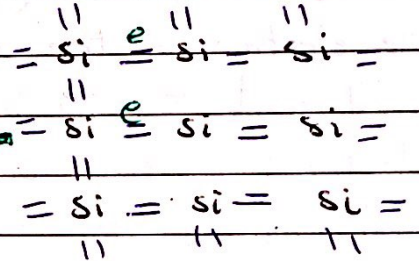 || || ||
= si e= si = si =
||
= si e= si = si =
||
= si = si = si =
|| || ||